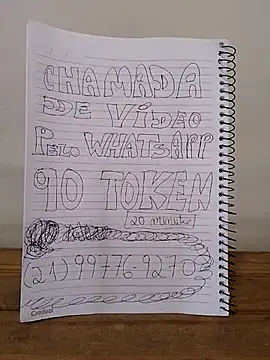 CHAMADA
DE VÍDEO
PELO WHATSAPP
90 TOKEN
20 minuto
(21) 99776-9270
Credeal